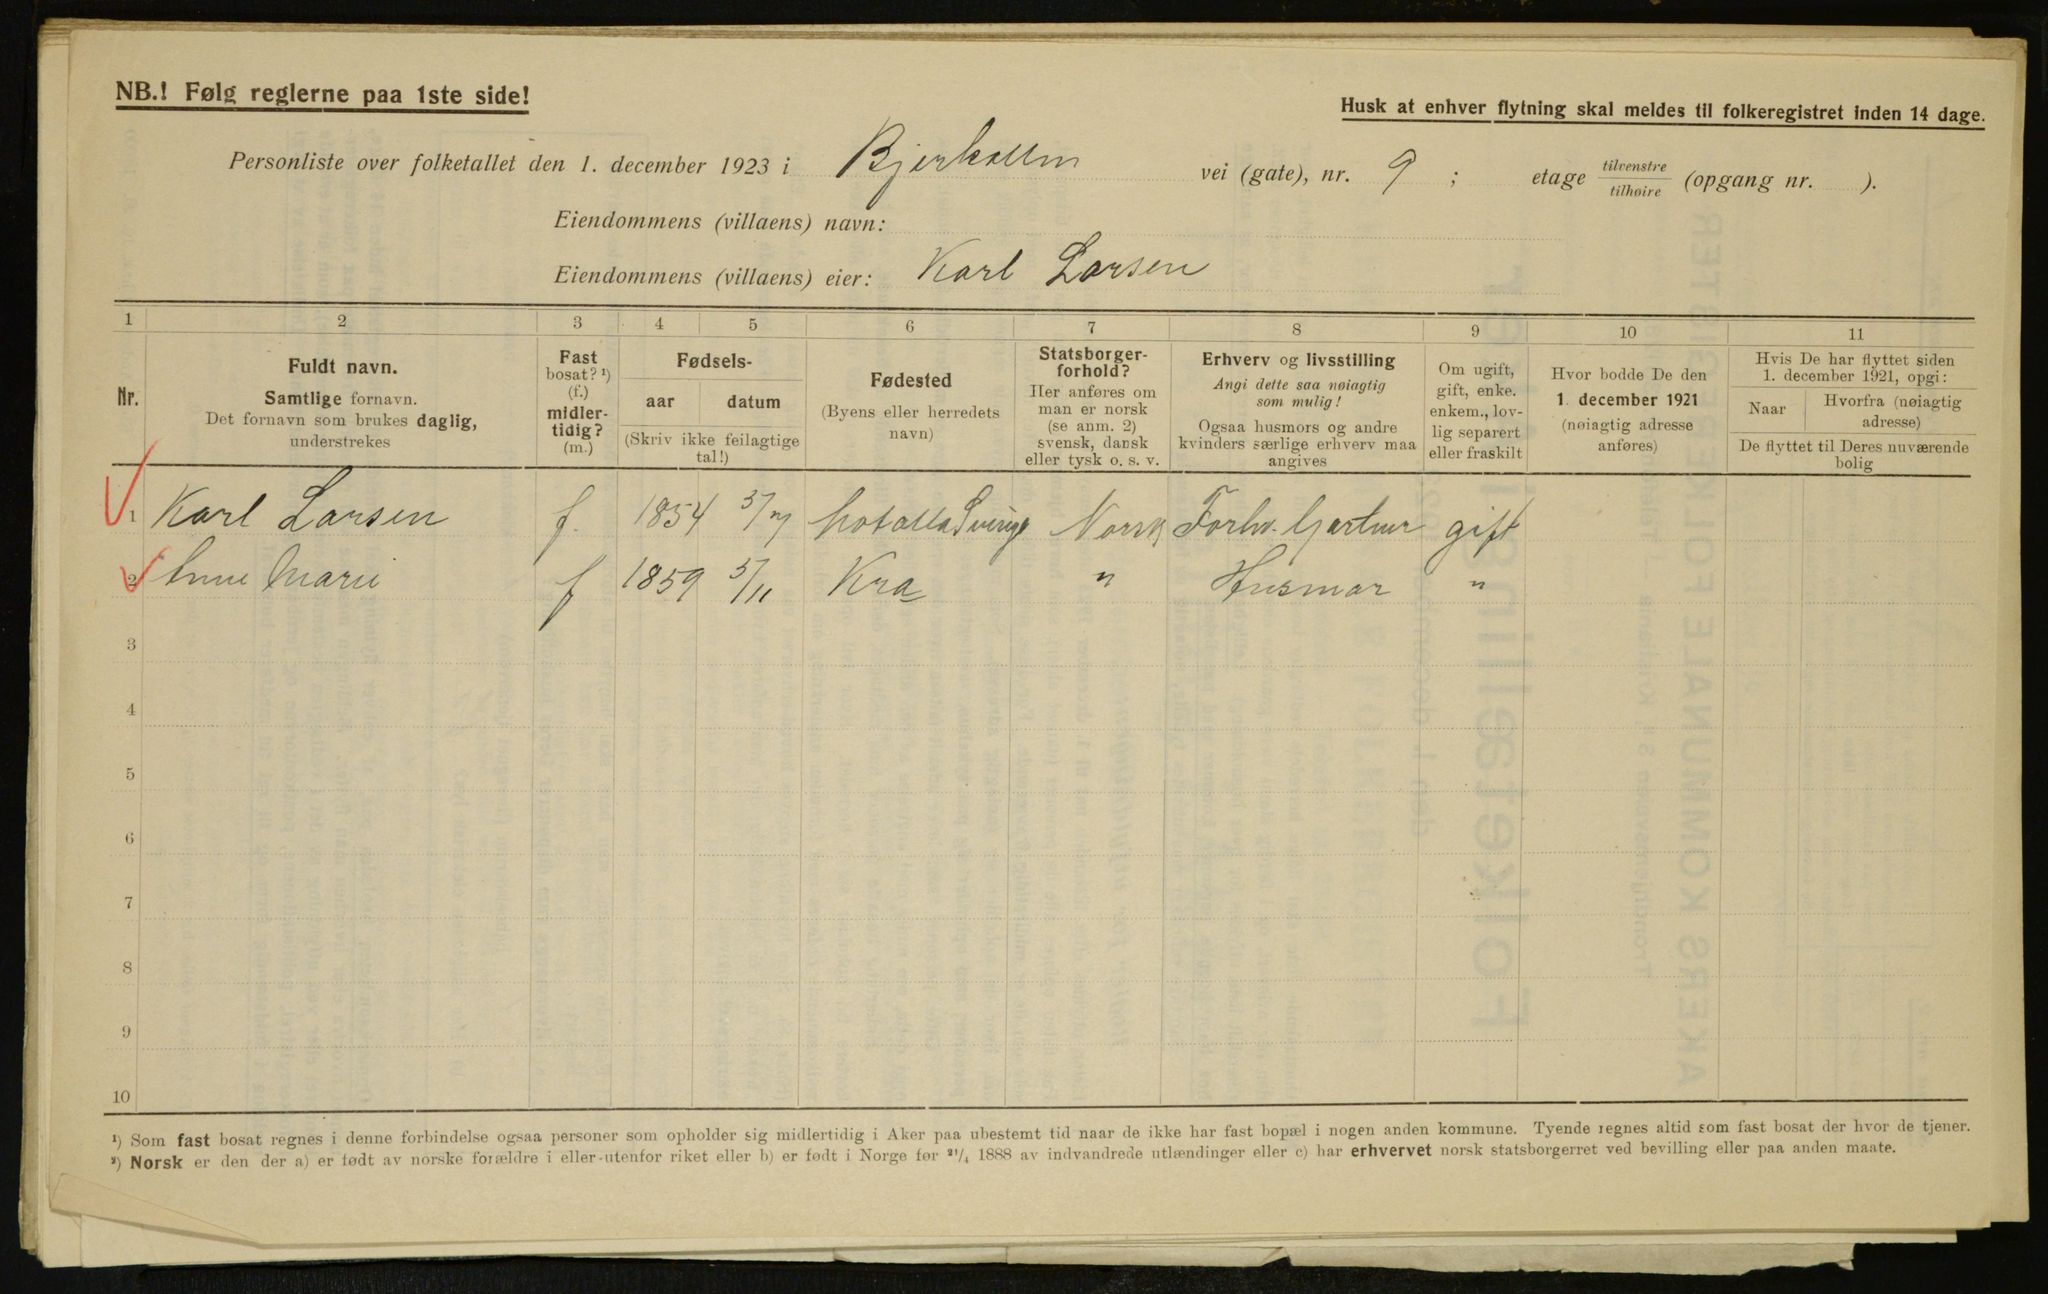 NB.! Følg reglerne paa 1ste side!
Husk at enhver flytning skal meldes til folkeregistret inden 14 dage.
Personliste over folketallet den 1. december 1923 i Bjerkealleen vei (gate), nr. 9 ; etage tilvenstre / tilhøire (opgang nr. ).
Eiendommens (villaens) navn:
Eiendommens (villaens) eier: Karl Larsen
1 2 3 4 5 6 7 8 9 10 11
Nr.
Fuldt navn.
Samtlige fornavn.
Det fornavn som brukes daglig,
understrekes
Fast
bosat? ¹)
(f.)
midler-
tidig?
(m.)
Fødsels-
aar datum
(Skriv ikke feilagtige
tal!)
Fødested
(Byens eller herredets
navn)
Statsborger-
forhold?
Her anføres om
man er norsk
(se anm. 2)
svensk, dansk
eller tysk o. s. v.
Erhverv og livsstilling
Angi dette saa nøiagtig
som mulig!
Ogsaa husmors og andre
kvinders særlige erhverv maa
angives
Om ugift,
gift, enke.
enkem., lov-
lig separert
eller fraskilt
Hvor bodde De den
1. december 1921
(nøiagtig adresse
anføres)
Hvis De har flyttet siden
1. december 1921, opgi:
Naar Hvorfra (nøiagtig
adresse)
De flyttet til Deres nuværende
bolig
1 Karl Larsen f. 1854 5/7 Motalla Sverige Norsk Forhv. Gartner gift
2 Anne Marie f 1859 5/11 Kra " Husmor "
3
4
5
6
7
8
9
10
¹) Som fast bosat regnes i denne forbindelse ogsaa personer som opholder sig midlertidig i Aker paa ubestemt tid naar de ikke har fast bopæl i nogen anden kommune. Tyende regnes altid som fast bosat der hvor de tjener.
²) Norsk er den der a) er født av norske forældre i eller utenfor riket eller b) er født i Norge før ²¹/₄ 1888 av indvandrede utlændinger eller c) har erhvervet norsk statsborgerret ved bevilling eller paa anden maate.